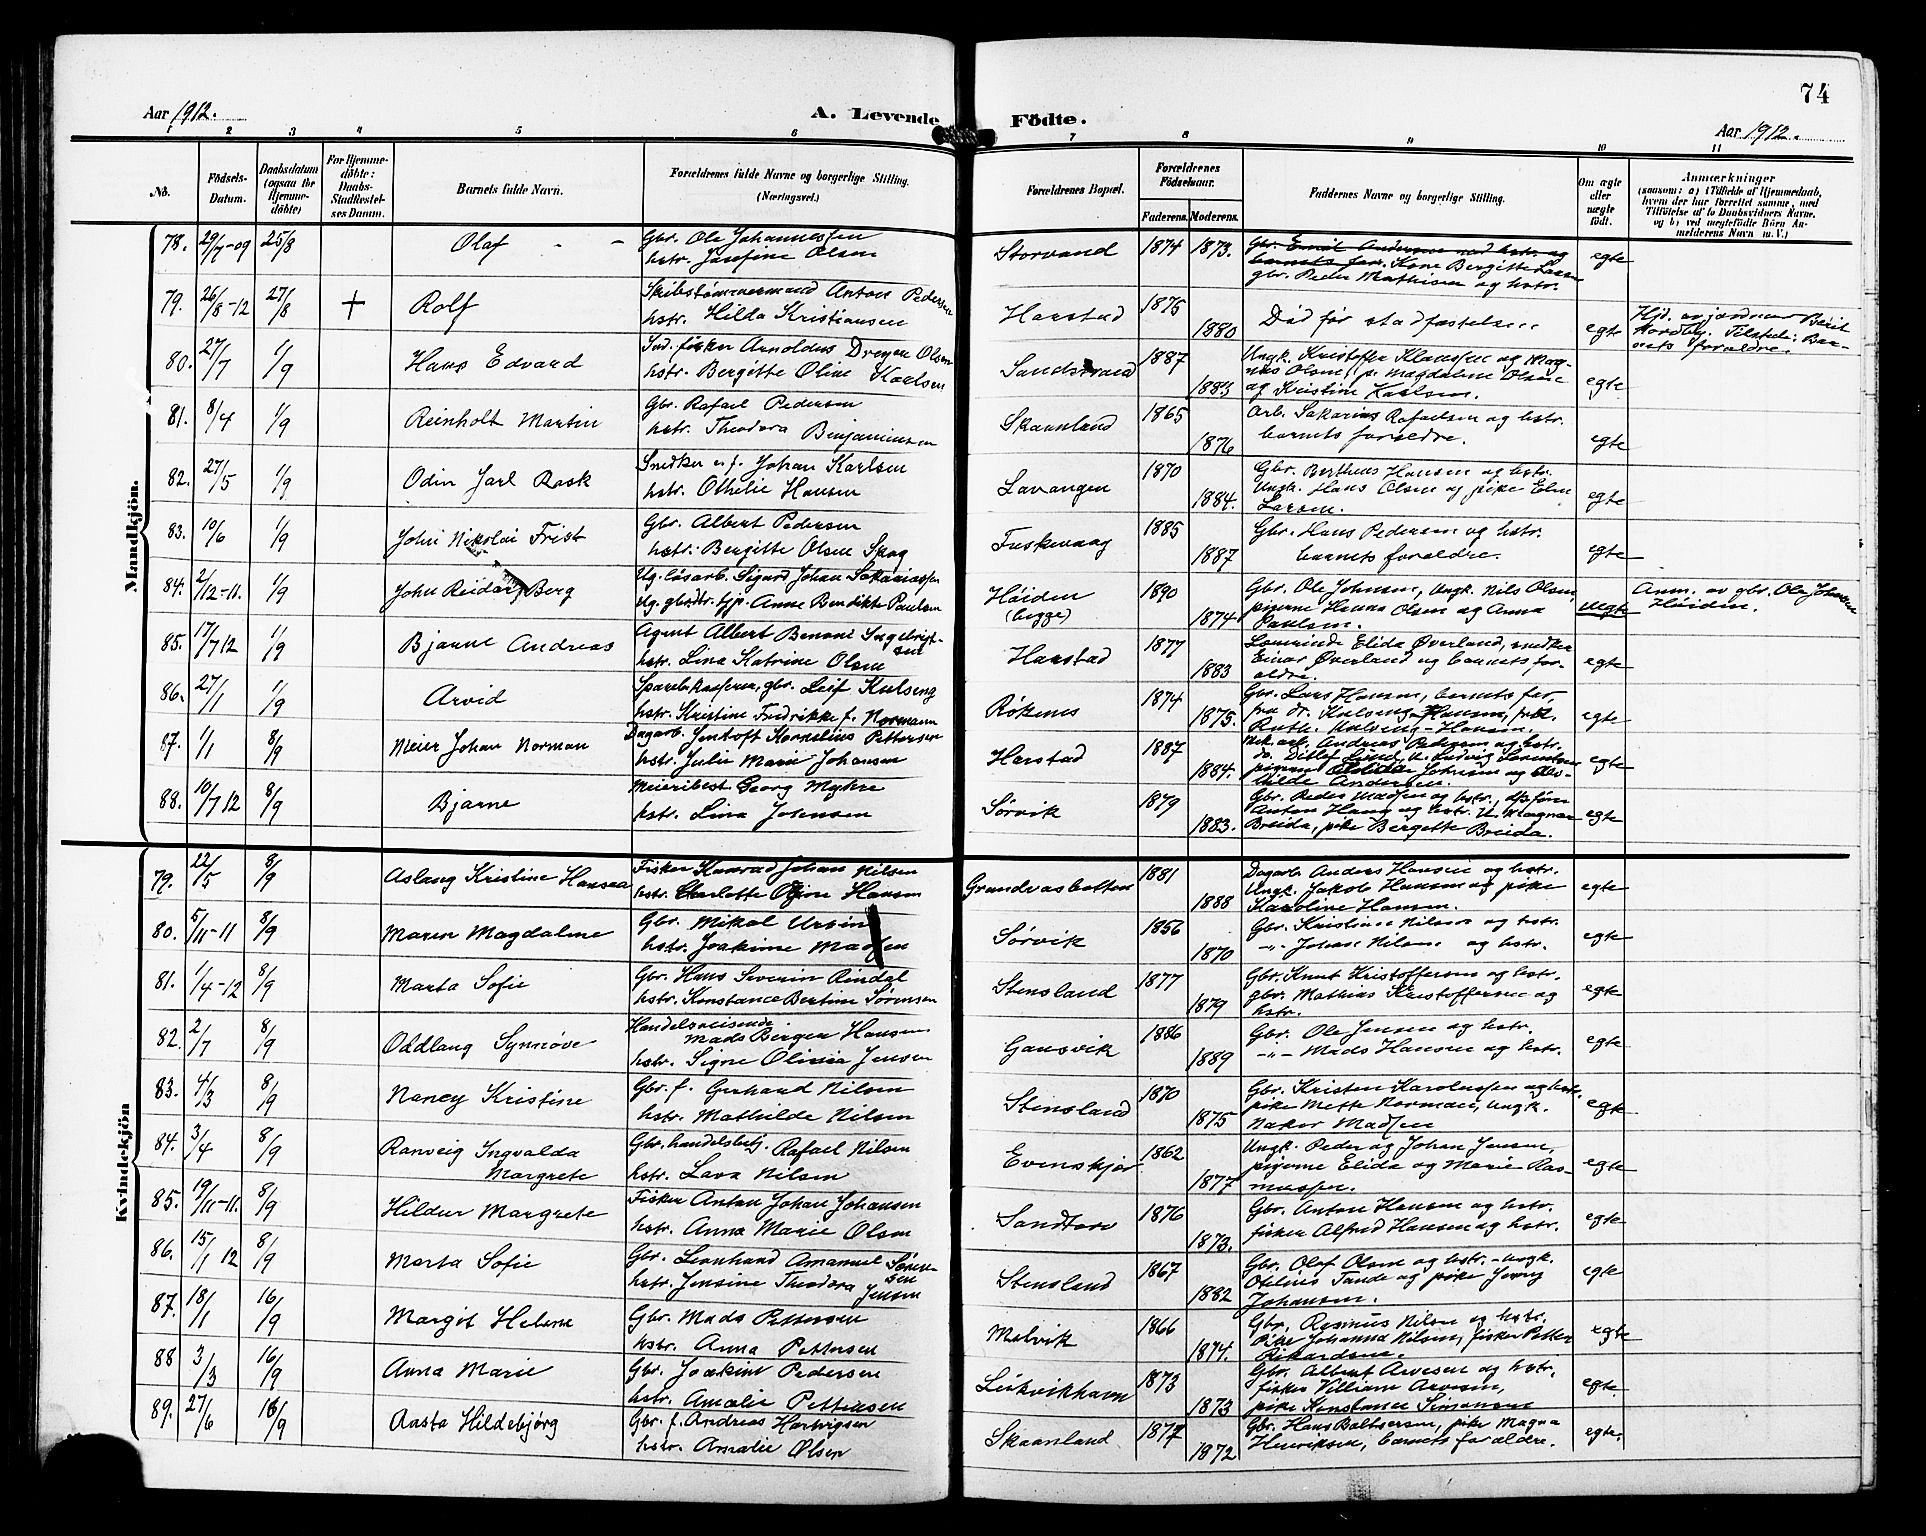 74
Aar 1912.
A. Levende Födte.
Aar 1912.
1 2 3 4 5 6 7 8 9 10 11
No.
Födsels-Datum.
Daabsdatum (ogsaa for Hjemme-döbte)
For Hjemme-döbte: Daabs-Stadfæstel-ses Datum.
Barnets fulde Navn.
Forældrenes fulde Navne og borgerlige Stilling. (Næringsvei.)
Forældrenes Bopæl.
Forældrenes Födselsaar.
Faderens. Moderens.
Faddernes Navne og borgerlige Stilling.
Om ægte eller uægte födt.
Anmærkninger
(saasom: a) i Tilfælde af Hjemmedaab,
hvem der har forrettet samme, med
Tilföielse af to Daabsvidners Navne,
og b) ved uegtefödte Börn An-
melderens Navn m. V.)
Mandkjön.
78. 29/7-09 25/8 Olaf - - Gbr. Ole Johannessen
hstr. Josefine Olsen Storvand 1874 1873. Gbr. Emil Andersen med hstr. og
barnets far. Kone Bergitte Larsen
gbr. Peder Mathisen og hstr. egte
79. 26/8-12 27/8 + Rolf Skibstømmermand Anton Pedersen
hstr. Hilda Kristiansen Harstad 1875 1880 Död før stadfæstelsen egte Hjd. av jordmor Berit
Nordby. Tilstede: Bar-
nets forældre.
80. 27/7 1/9 Hans Edvard Ind. fisker Arnoldus Dreyer Olsen
hstr. Bergitte Oline Karlsen Sandstrand 1887 1883 Ungk. Kristoffer Klaussen og Mag-
nus Olsen, p. Magdalene Olsen
og Kristine Karlsen. egte
81. 8/4 1/9 Reinholt Martin Gbr. Rafael Pedersen
hstr. Theodora Benjaminsen Skaanland 1865 1876 Arb. Sakarias Rafaelsen og hstr.
barnets forældre. egte
82. 27/5 1/9 Odin Jarl Rask Snedker e. f. Johan Karlsen
hstr. Othelie Hansen Lavangen 1870 1884. Gbr. Bertheus Hansen og hstr.
Ungk. Hans Olsen og pike Elen
Larsen. egte
83. 10/6 1/9 John Nikolai Frist Gbr. Albert Pedersen
hstr. Bergitte Olsen Skog Fuskevaag 1885 1887 Gbr. Hans Pedersen og hstr.
barnets forældre. egte
84. 2/12-11. 1/9 John Reidar Berg Ug. løsarb. Sigurd Johan Sakariassen
Ug. gbrdtr. tjp. Anne Bendikte Paulsen Høiden
(begge) 1890 1874 Gbr. Ole Johnsen, Ungk. Nils Olsen,
pigerne Hanna Olsen og Anna
Paulsen. uegte Anm. av gbr. Ole Johnsen
Høiden.
85. 17/7 12 1/9 Bjarne Andreas Agent Albert Benoni Ingebrigt-
sen
hstr. Lina Katrine Olsen Harstad 1877 1883 Lærerinde Elida Øverland, snedker
Einar Øverland og barnets for-
ældre. egte
86. 27/1 1/9 Arvid Sparebkasserer, gbr. Leif Kulseng
hstr. Kristine Fredrikke f. Normann Røkenes 1874 1875. Gbr. Lars Hansen, barnets far
fru dr. Kulseng-Hansen, frk.
Ruth. Kulseng-Hansen. egte
87. 1/1 8/9 Meier Johan Norman Dagarb. Jentoft Kornelius Pettersen
hstr. Julie Marie Johansen Harstad 1887 1884. Mek. arb. Andreas Pedersen og hstr.
do. Ditlef Lund, u. Ludvig Lorentsen
pigerne Johnsen og
Andersen. egte
88. 10/7 12 8/9 Bjarne Meieribest. Georg Myhre
hstr. Lina Johnsen Sørvik 1879 1883. Gbr. Peder Madsen og hstr., dpfører
Anton Hans og hstr. U. Magnar
Breida, pike Bergette Breida. egte
Kvindekjön
79. 22/5 8/9 Aslaug Kristine Hansaa Fisker Konrad Johan Nilsen
hstr. Charlotte Oline Hansen Grundvasbotten 1881 1888 Dagarb. Anders Hansen og hstr.
Ungk. Jakob Hansen og pike
Karoline Hansen. egte
80. 5/11-11 8/9 Maren Magdalene Gbr. Mikal Ursin
hstr. Joakime Madsen Sørvik 1856 1870 Gbr. Kristian Nilsen og hstr.
-"- Johan Nilsen og hstr. egte
81. 1/4-12 8/9 Marta Sofie Gbr. Hans Severin Rindal
hstr. Konstance Bertine Sørensen Stensland 1877 1879 Gbr. Knut Kristoffersen og hstr.
gbr. Mathias Kristoffersen og
hstr. egte
82. 2/7 8/9 Oddlaug Synnöve Handelsreisende
Mads Berger Hansen
hstr. Signe Olivia Jensen Gausvik 1886 1889 Gbr. Ole Jensen og hstr.
-"- Mads Hansen og hstr. egte
83. 4/3 8/9 Nancy Kristine Gbr. f. Gerhard Nilsen
hstr. Mathilde Nilsen Stensland 1870 1875 Gbr. Kristen Karolussen og hstr.
pike Mette Norman, Ungk.
Madsen egte
84. 3/4 8/9 Ranveig Ingvalda
Margrete Gbr. handelsbetj. Rafael Nilsen
hstr. Lava Nilsen Evenskjær 1862 1877 Ungk. Peder og Johan Jensen,
pigerne Elida og Marie Ras-
mussen. egte
85. 19/11-11. 8/9 Hildur Margrete Fisker Anton Johan Johansen
hstr. Anna Marie Olsen Sandtorv 1876 1873. Gbr. Anton Hansen og hstr.
fisker Alfred Hansen og hstr. egte
86. 15/1 12 8/9 Marta Sofie Gbr. Leonhard Amanuel Søren-
sen
hstr. Jensine Theodora Jensen Stensland 1867 1882 Gbr. Olaf Olsen og hstr. - Ungk.
Otelius Tande og pike Jenny
Johansen. egte
87. 18/1 16/9 Margit Helene Gbr. Mads Pettersen
hstr. Anna Pettersen Melvik 1866 1874. Gbr. Rasmus Nilsen og hstr.
Pike Johanna Nilsen, fisker Petter
Rikardsen. egte
88 3/3 16/9 Anna Marie Gbr. Joakim Pedersen
hstr. Amalie Pettersen Leikvikhavn 1873 1873 Gbr. Albert Arvesen og hstr.
fisker Villiam Arvesen,
pike Konstance Simonsen egte
89. 27/6 16/9 Aasta Hildebjörg Gbr. f. Andreas Hartvigsen
hstr. Amalie Olsen Skaanland 1877 1872 Gbr. Hans Baltsersen, pike Magna
Henriksen, barnets forældre. egte.